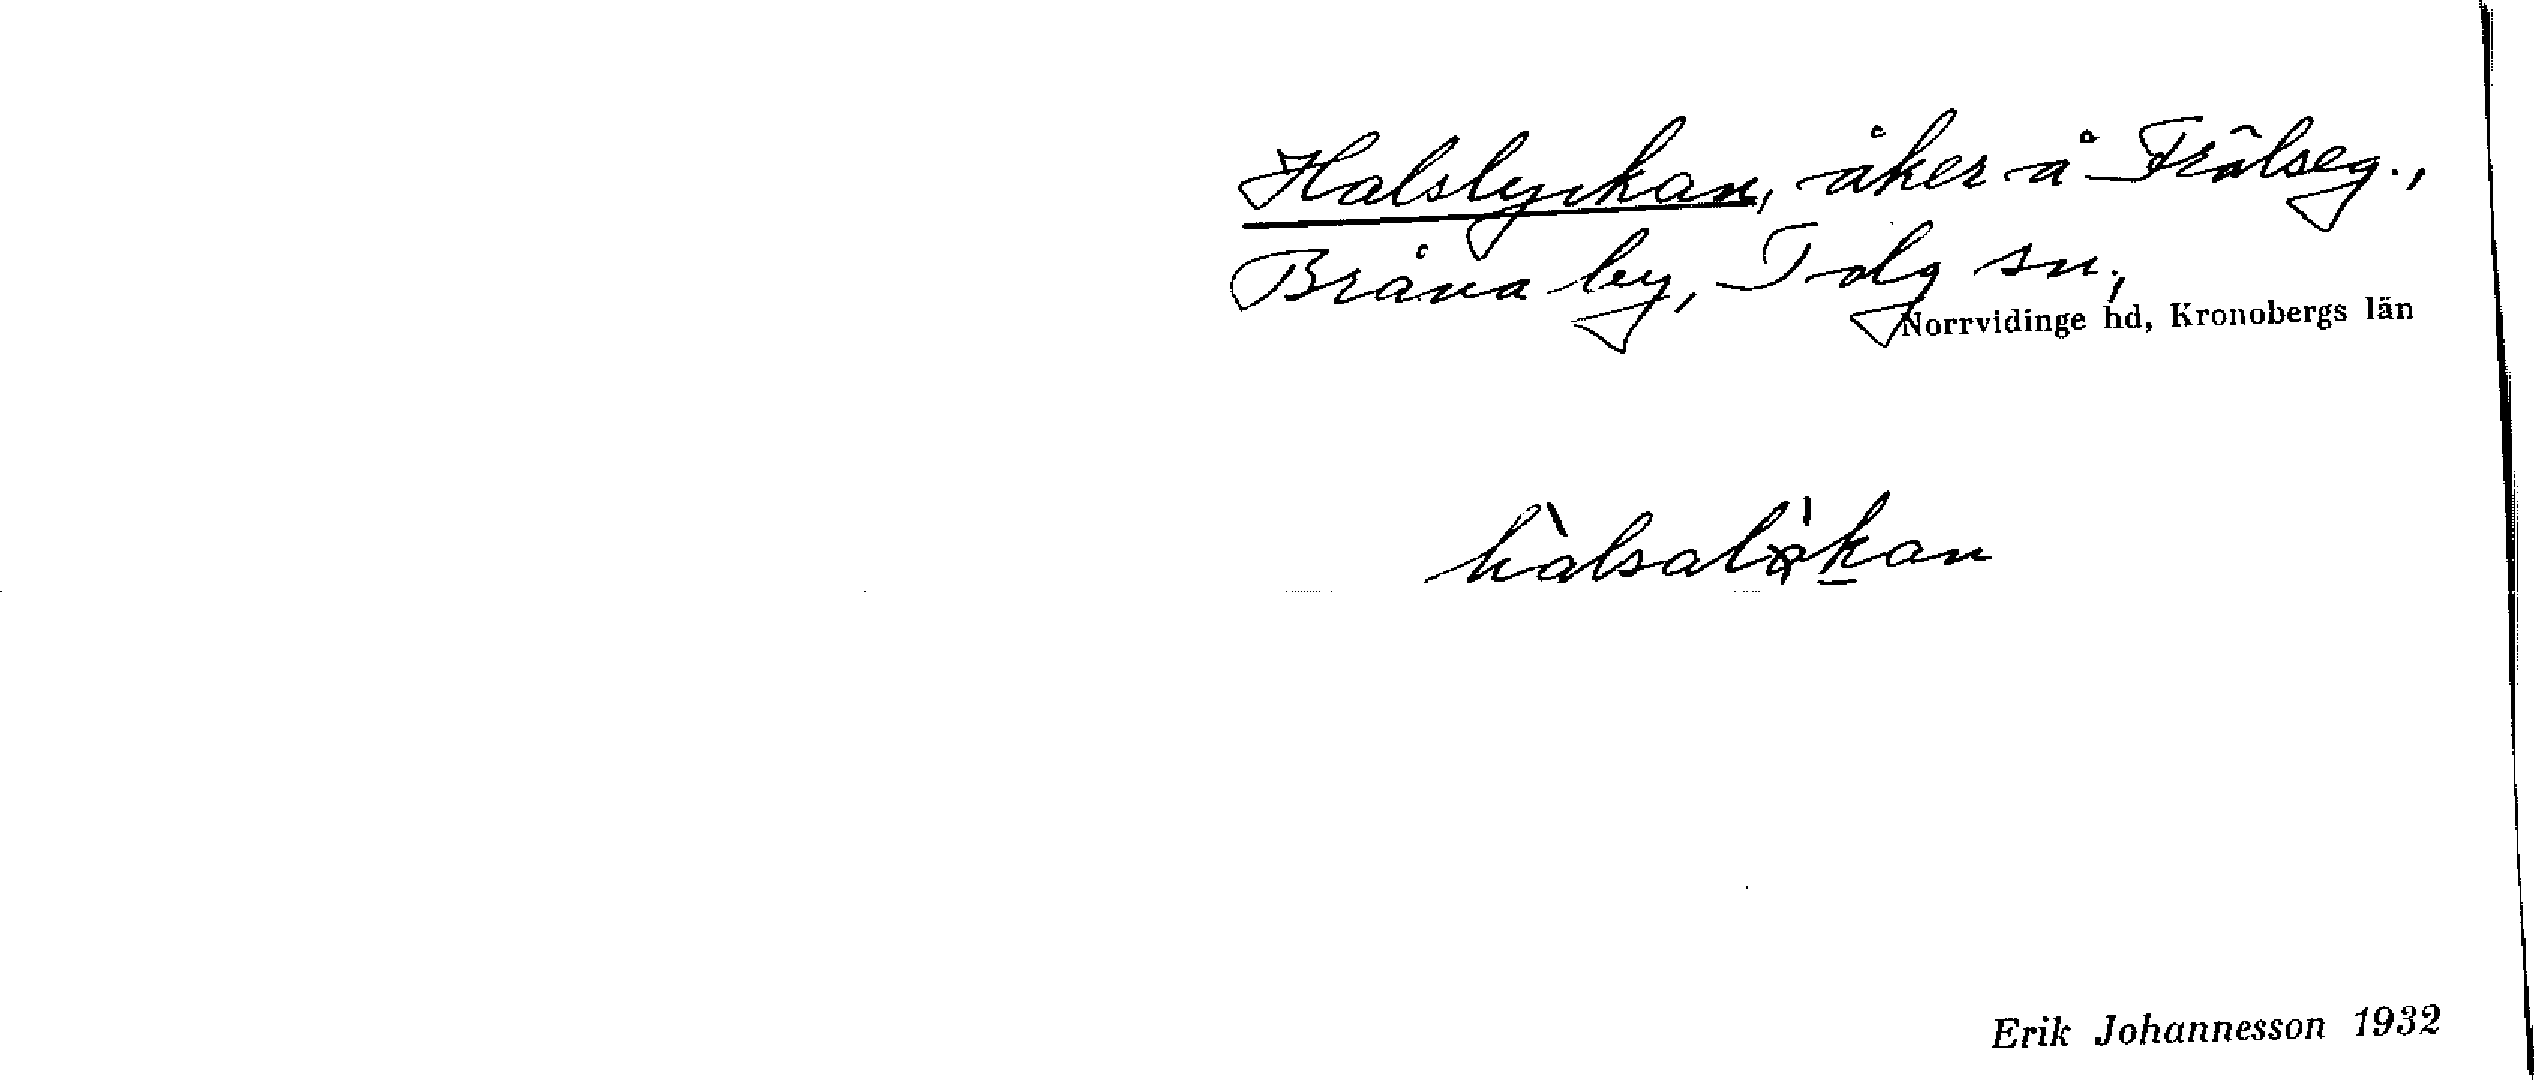 Halslyckan, åker å Frälseg.,
Bråna by, Tolg sn.,
Norrvidinge hd, Kronobergs län
Erik Johannesson 1932